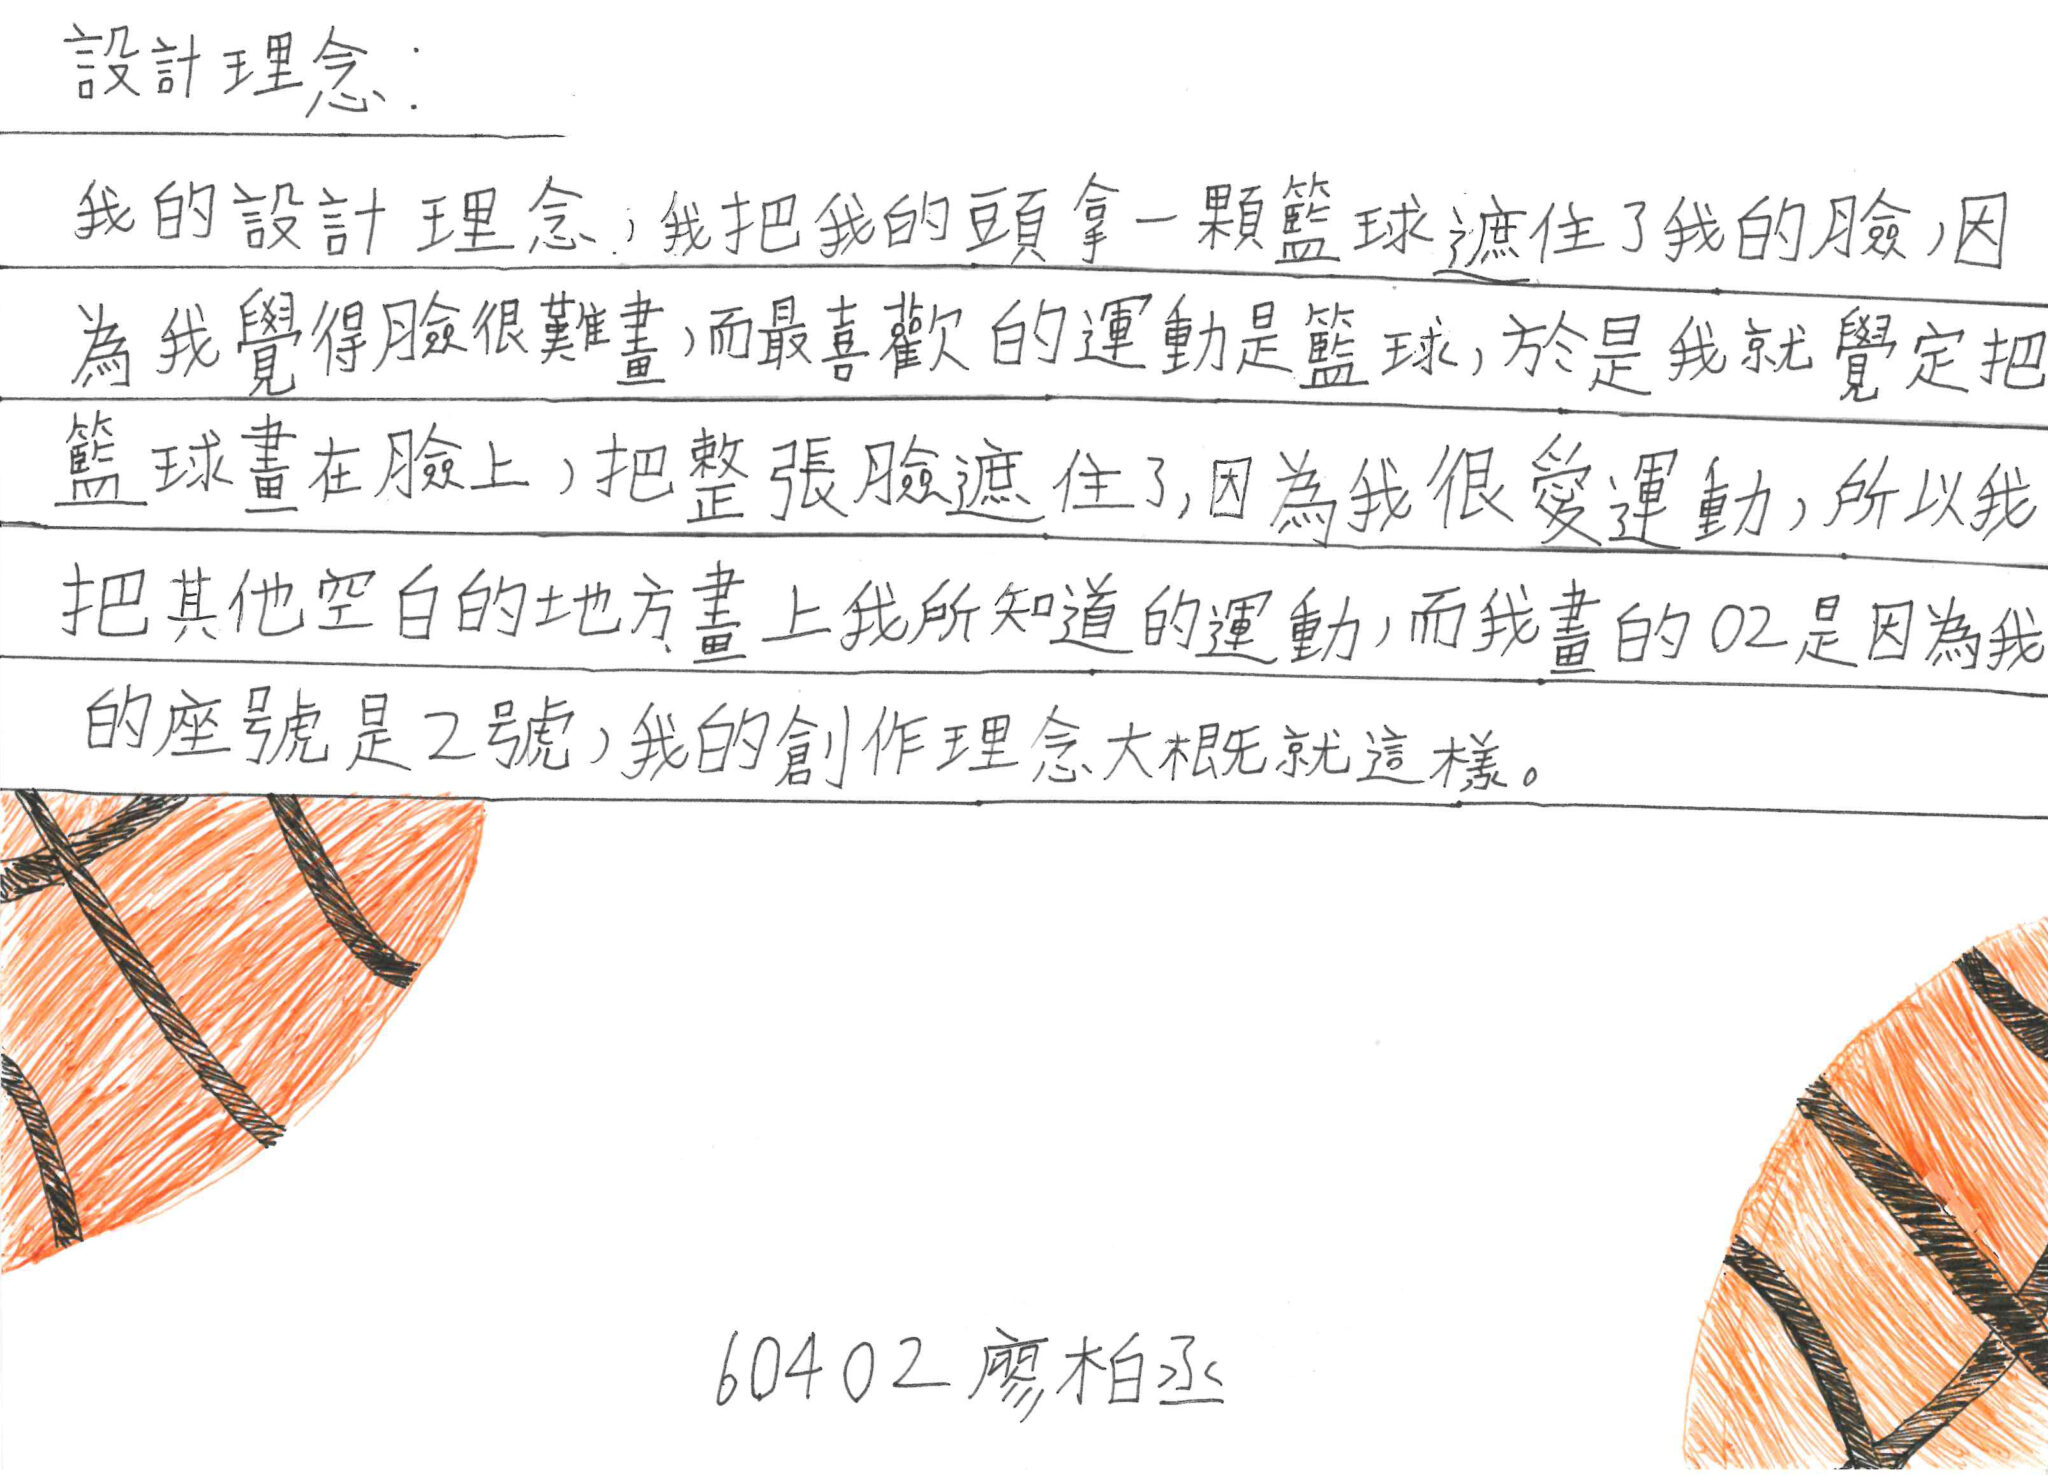 設計理念:
我的設計理念,我把我的頭拿一顆籃球遮住了我的臉,因
為我覺得臉很難畫,而最喜歡的運動是籃球,於是我就覺定把
籃球畫在臉上,把整張臉遮住了,因為我很愛運動,所以我
把其他空白的地方畫上我所知道的運動,而我畫的02是因為我
的座號是2號,我的創作理念大概就這樣。
60402廖柏丞